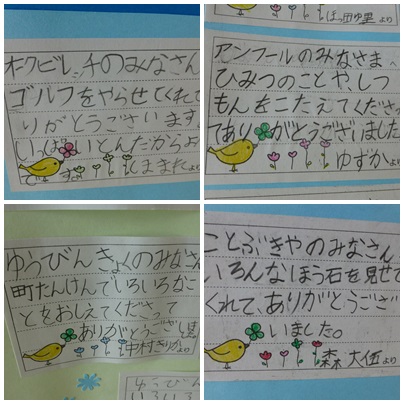 オクビレッチのみなさん
ゴルフをやらせてくれて
りがとうございます
いっぱいとんだからよ
です。
ままれより
より
アンフールのみなさまへ
ひみつのことや、しつ
もんをこたえてくださっ
てありがとうございました
ゆずかより
ゆうびんきょくのみなさん
町たんけんでいろいろなこ
とをおしえてくださって
ありがとうござい
中村きりかより
ゆうびん
ことぶきやのみなさん
いろんなほう石を見せて
くれて、ありがとうござ
いました。
森 大伍より